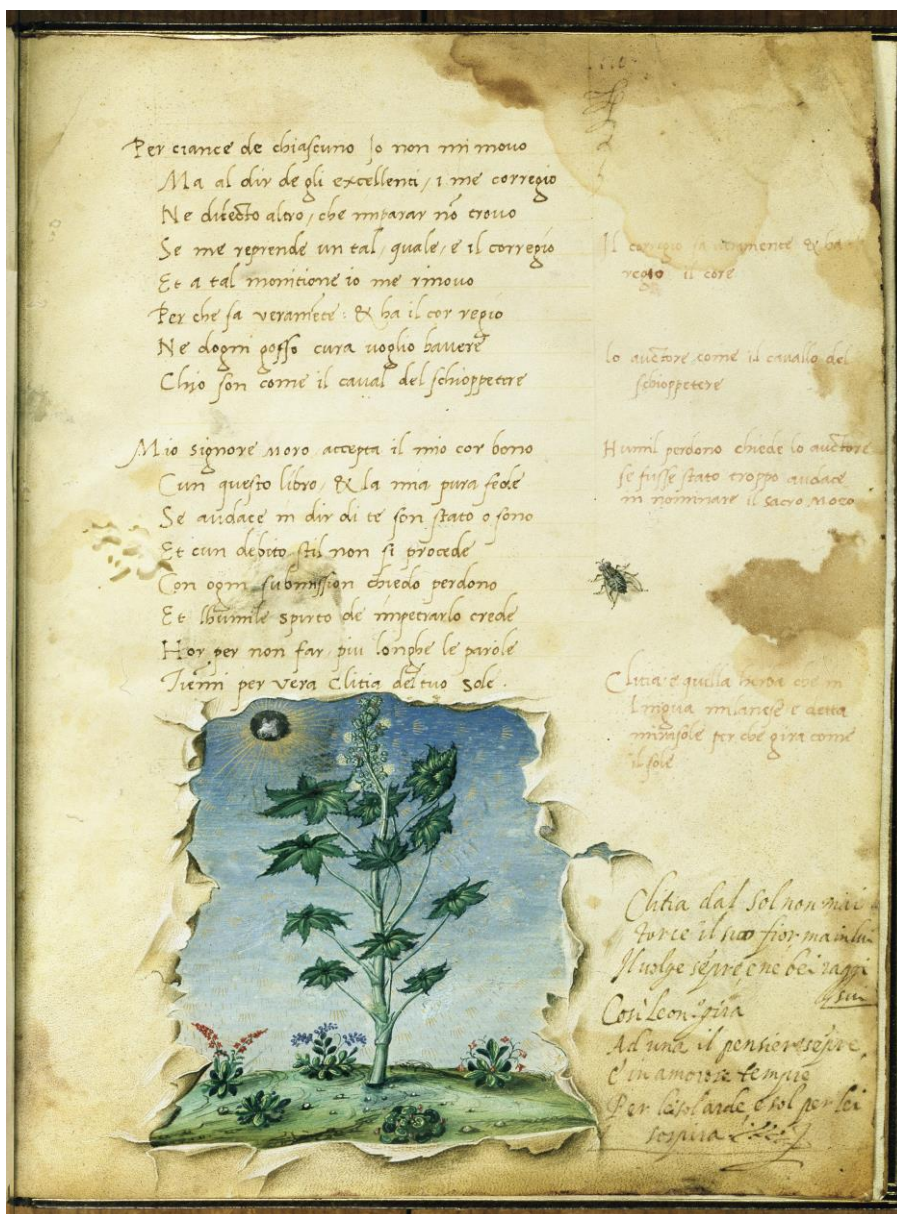 Per ciance de chiascuno Io non mi movo
Ma al dir de gli excellenti / i me corregio
Ne dilecto altro / che imparar nō trovo
Se me reprende un tal / quale / e il corregio
Et a tal monitione io me rinovo
Per che sa veramēte : & ha il cor regio
Ne dogni goffo cura voglio havere
Chio son come il caval del schioppettere
Mio signore moro accepta il mio cor bono
Cun questo libro / & la mia pura fede
Se audace in dir di te son stato o sono
Et cun debito stil non si procede
Con ogni submission chiedo perdono
Et lhumile spirto de impetrarlo crede
Hor per non far piu longhe le parole
Tiemi per vera Clitia del tuo sole .
Il corregio sa veramente & ha
regio il core
lo auctore come il cavallo del
schioppetere
Humil perdono chiede lo auctore
se fusse stato troppo audace
in nominare il sacro moro
Clitia e quella herba che in
lingua milanese e detta
mirasole per che gira come
il sole
Clitia dal sol non mai
torce il suo fior ma in lui
Il volge sēpre e ne bei raggi
sui
Così Leon gira
Ad una il pensier sēpre
E in amorose tempre
Per lei sol arde e sol per lei
sospira